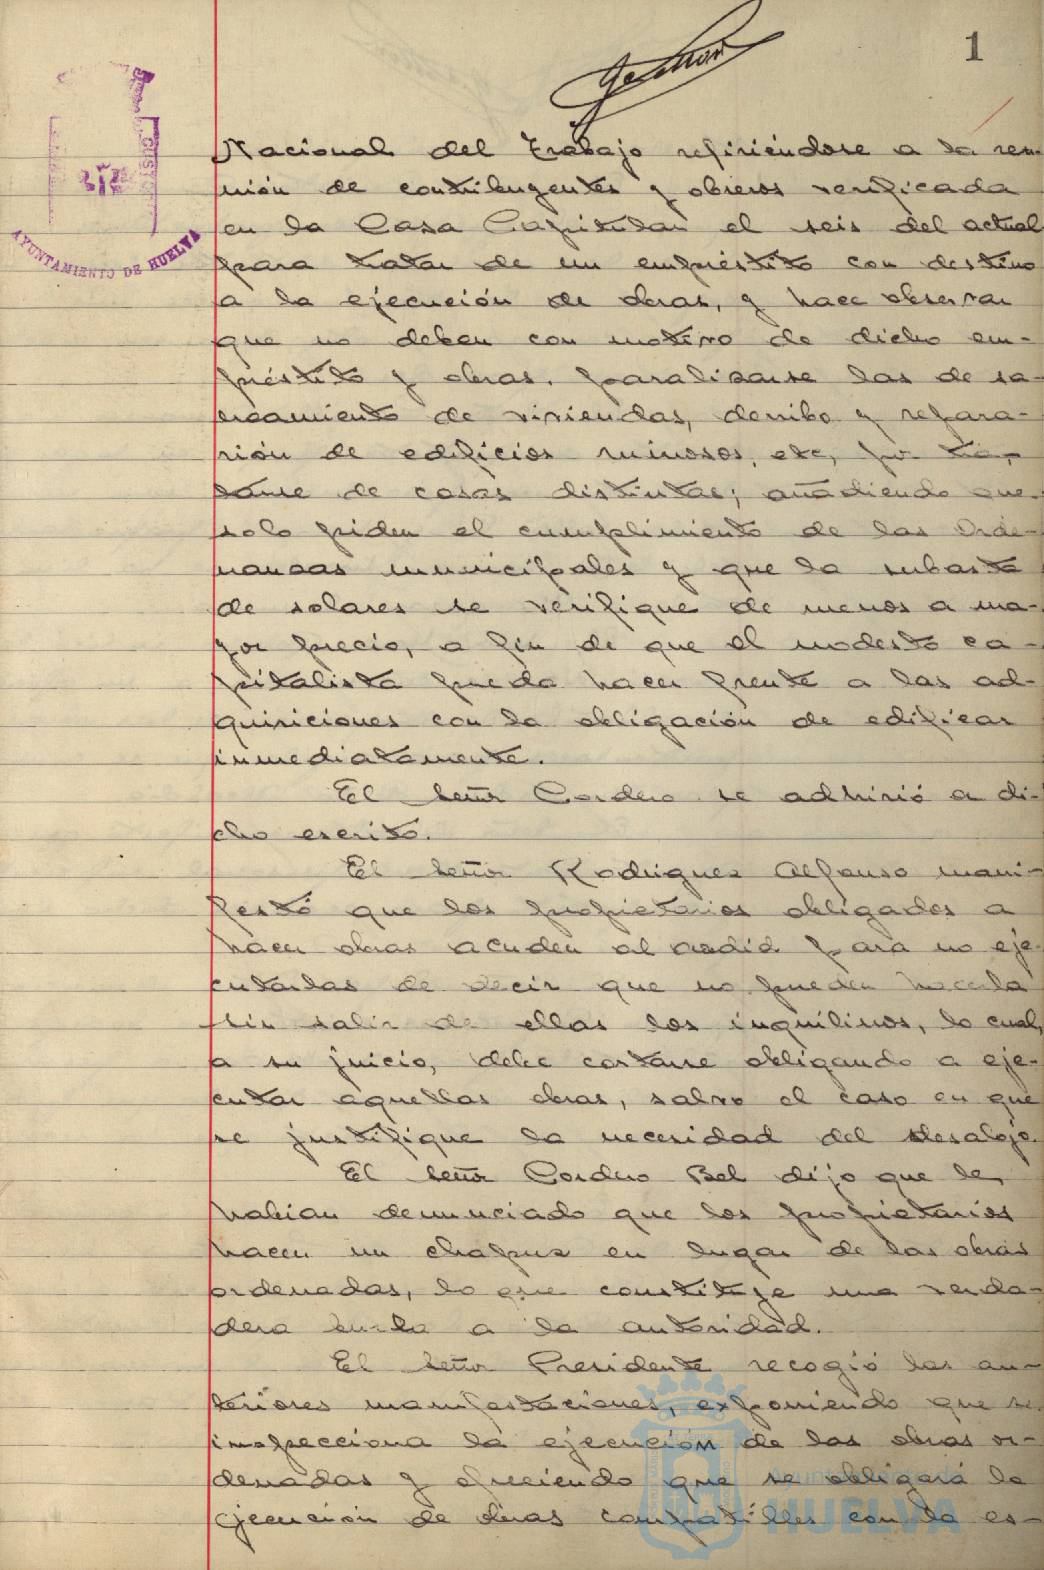 1
Nacional del Trabajo refiriéndose a la reu-
nión de contribuyentes y obreros verificada
en la Casa Capitular el seis del actual
para tratar de un empréstito con destino
a la ejecución de obras, y hace observar
que no deben con motivo de dicho em-
préstito y obras, paralizarse las de sa-
neamiento de viviendas, derribo y repara-
ción de edificios ruinosos, etc, por tra-
tarse de cosas distintas; añadiendo que
solo piden el cumplimiento de las Orde-
nanzas municipales y que la subasta
de solares se verifique de menos a ma-
yor precio, a fin de que el modesto ca-
pitalista pueda hacer frente a las ad-
quisiciones con la obligación de edificar
inmediatamente.
El Señor Cordero se adhirió a di-
cho escrito.
El Señor Rodriguez Alfonso mani-
festó que los propietarios obligados a
hacer obras acuden al ardid para no eje-
cutarlas de decir que no pueden hacerla
sin salir de ellas los inquilinos, lo cual,
a su juicio, debe cortarse obligando a eje-
cutar aquellas obras, salvo el caso en que
se justifique la necesidad del desalojo.
El Señor Cordero Bel dijo que le
habian denunciado que los propietarios
hacen un chapuz en lugar de las obras
ordenadas, lo que constituye una verda-
dera burla a la autoridad.
El Señor Presidente recogió las an-
teriores manifestaciones, exponiendo que se
inspecciona la ejecución de las obras or-
denadas y ofreciendo que se obligará la
ejecución de obras compatibles con la es-
AYUNTAMIENTO DE HUELVA
Ayuntamiento de
HUELVA